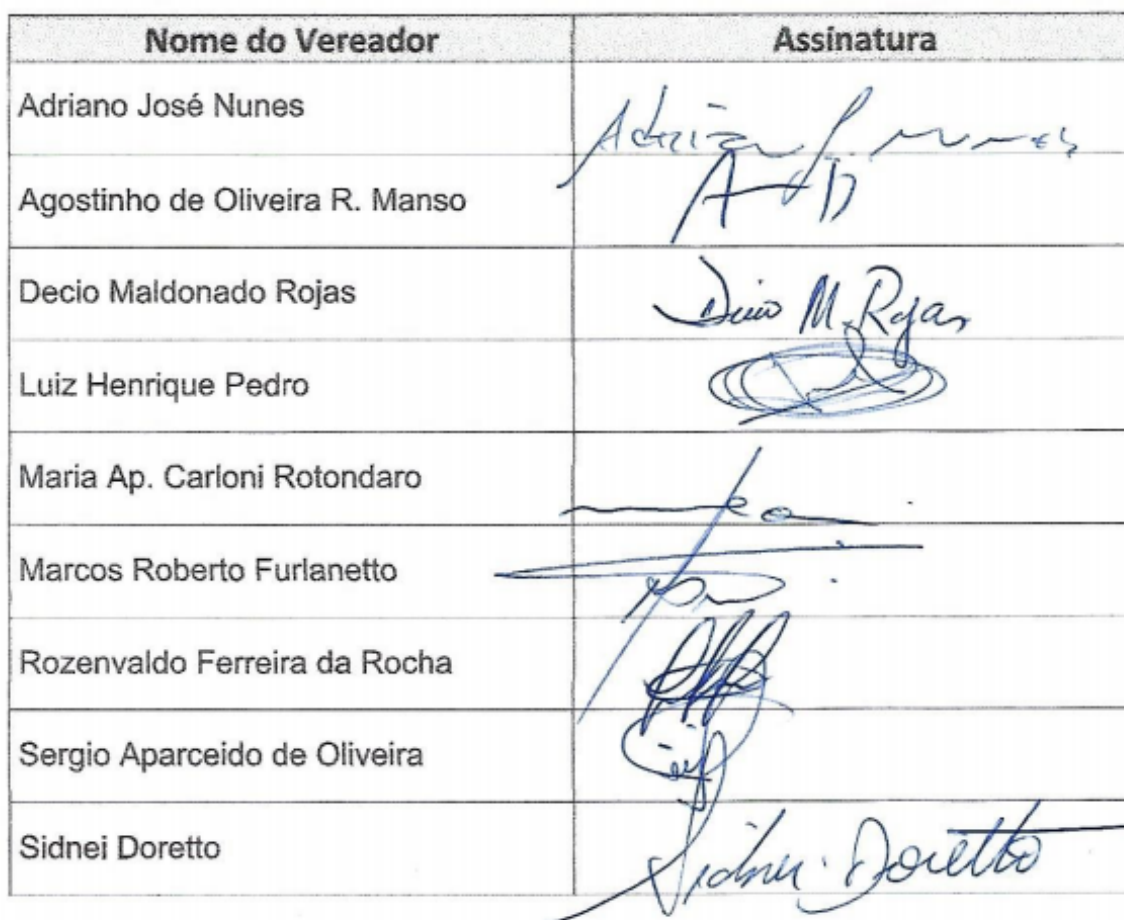 Nome do Vereador Assinatura
Adriano José Nunes Adriano J Nunes
Agostinho de Oliveira R. Manso
Decio Maldonado Rojas Decio M. Rojas
Luiz Henrique Pedro
Maria Ap. Carloni Rotondaro
Marcos Roberto Furlanetto
Rozenvaldo Ferreira da Rocha
Sergio Aparceido de Oliveira
Sidnei Doretto Sidnei Doretto